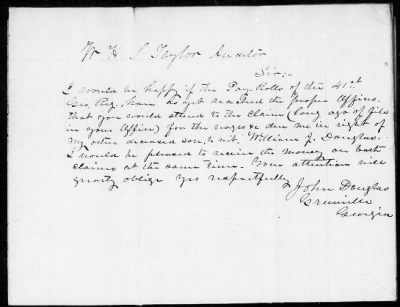 W. H. S. Taylor Auditor
Sir:-
I would be happy if the Pay Rolls of the 41st
Geo. Reg. have as yet reached the proper Office,
that you would attend to the claim (long ago of file
in your Office) for the wages &c due me in right of
my other deceased son, to wit, William J. Douglas.
I would be pleased to receive the money on both
claims at the same time. Your attention will
greatly oblige yrs respectfully
John Douglas
Greenville
Georgia